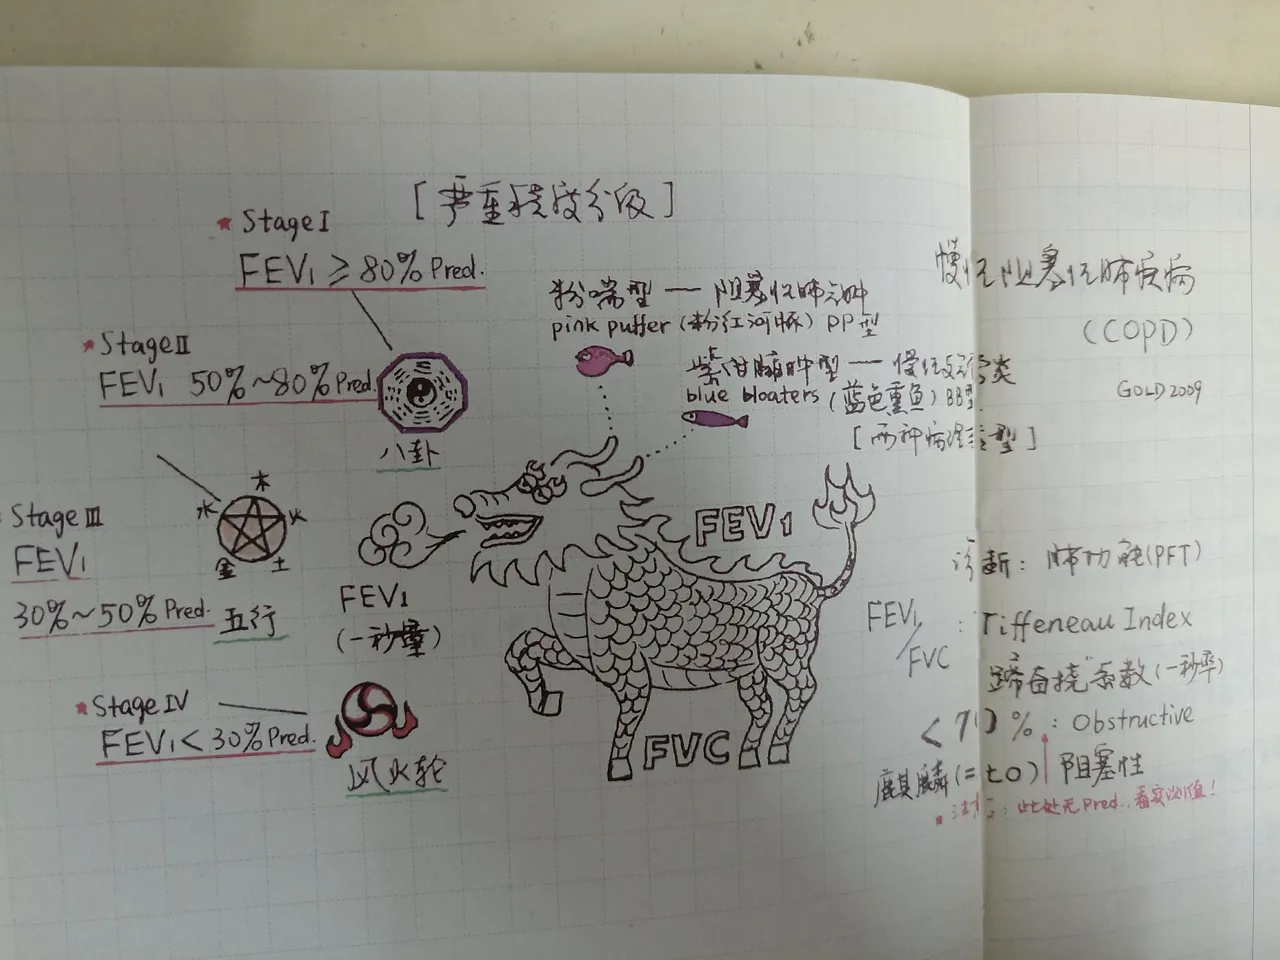 [严重程度分级]
★ Stage I
FEV₁ ≥ 80% Pred.
★ Stage II
FEV₁ 50%~80% Pred.
八卦
Stage III
FEV₁
30%~50% Pred.
木
火
土
金
水
五行
★ Stage IV
FEV₁ < 30% Pred.
风火轮
FEV1
(一秒量)
粉喘型 — 阻塞性肺气肿
pink puffer (粉红河豚) PP型
紫绀臃肿型 — 慢性支气管炎
blue bloaters (蓝色熏鱼) BB型
[两种病理类型]
FEV₁
FVC
慢性阻塞性肺疾病
(COPD)
GOLD2009
诊断: 肺功能(PFT)
FEV₁/FVC : Tiffeneau Index
"蹄奋挠"系数(一秒率)
<70% : Obstructive
麒麟(=70) 阻塞性
★ 注意: 此处无Pred., 看实测值!